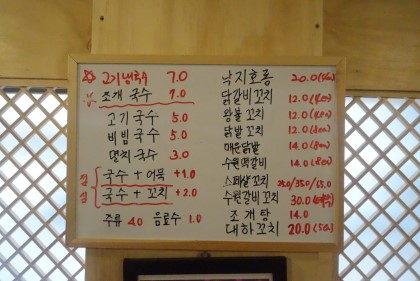 고기냉국수 7.0
조개 국수 7.0
고기 국수 5.0
비빔 국수 5.0
멸치 국수 3.0
국수 + 어묵 +1.0
국수 + 꼬치 +2.0
주류 4.0 음료수 1.0
낙지호롱 20.0
닭갈비꼬치 12.0
왕볼 꼬치 12.0
닭발 꼬치 12.0
매운닭발 14.0
수원떡갈비 14.0
스페샬꼬치
수원갈비꼬치 30.0
조개탕 14.0
대하꼬치 20.0